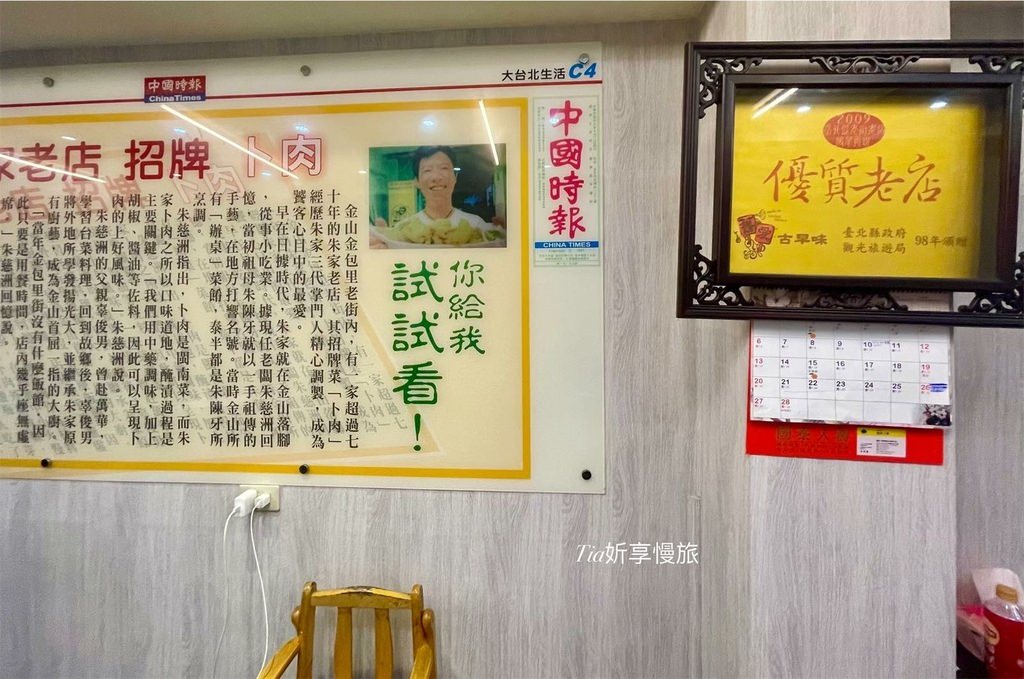 中國時報
China Times
大台北生活 C4
家老店 招牌 卜肉
中國時報
CHINA TIMES
你給我
試試看！
金山金包里老街內，有一家超過七
十年的朱家老店，其招牌菜「卜肉」
經歷朱家三代掌門人精心調製，成為
饕客心目中的最愛。
早在日據時代，朱家就在金山落腳
，從事小吃業。據現任老闆朱慈洲回
憶，當初祖母朱陳牙就以一手祖傳的
手藝，在地方打響名號。當時金山所
有「辦桌」菜餚，泰半都是朱陳牙所
烹調。
朱慈洲指出，卜肉是閩南菜，而朱
家卜肉之所以口味道地，醃漬過程是
主要關鍵。「我們用中藥調味，加上
胡椒、醬油等佐料，因此可以呈現下
肉的上好風味。」朱慈洲說。
朱慈洲的父親辜俊男，曾赴萬華，
學習台菜料理，回到故鄉後，辜俊男
將外地所學發揚光大，並繼承朱家原
有廚藝，成為金山首屈一指的大廚。
「當年金包里街沒有什麼飯館，因
此只要是用餐時間，店內幾乎極無虛
席。」朱慈洲回憶說。
2009
優質老店
古早味
臺北縣政府
觀光旅遊局
98年頒贈
6 7 8 9 10 11 12
13 14 15 16 17 18 19
20 21 22 23 24 25 26
27 28
Tia妡享慢旅